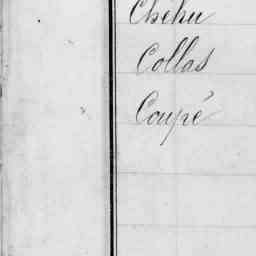 Chehu
Collas
Coupé